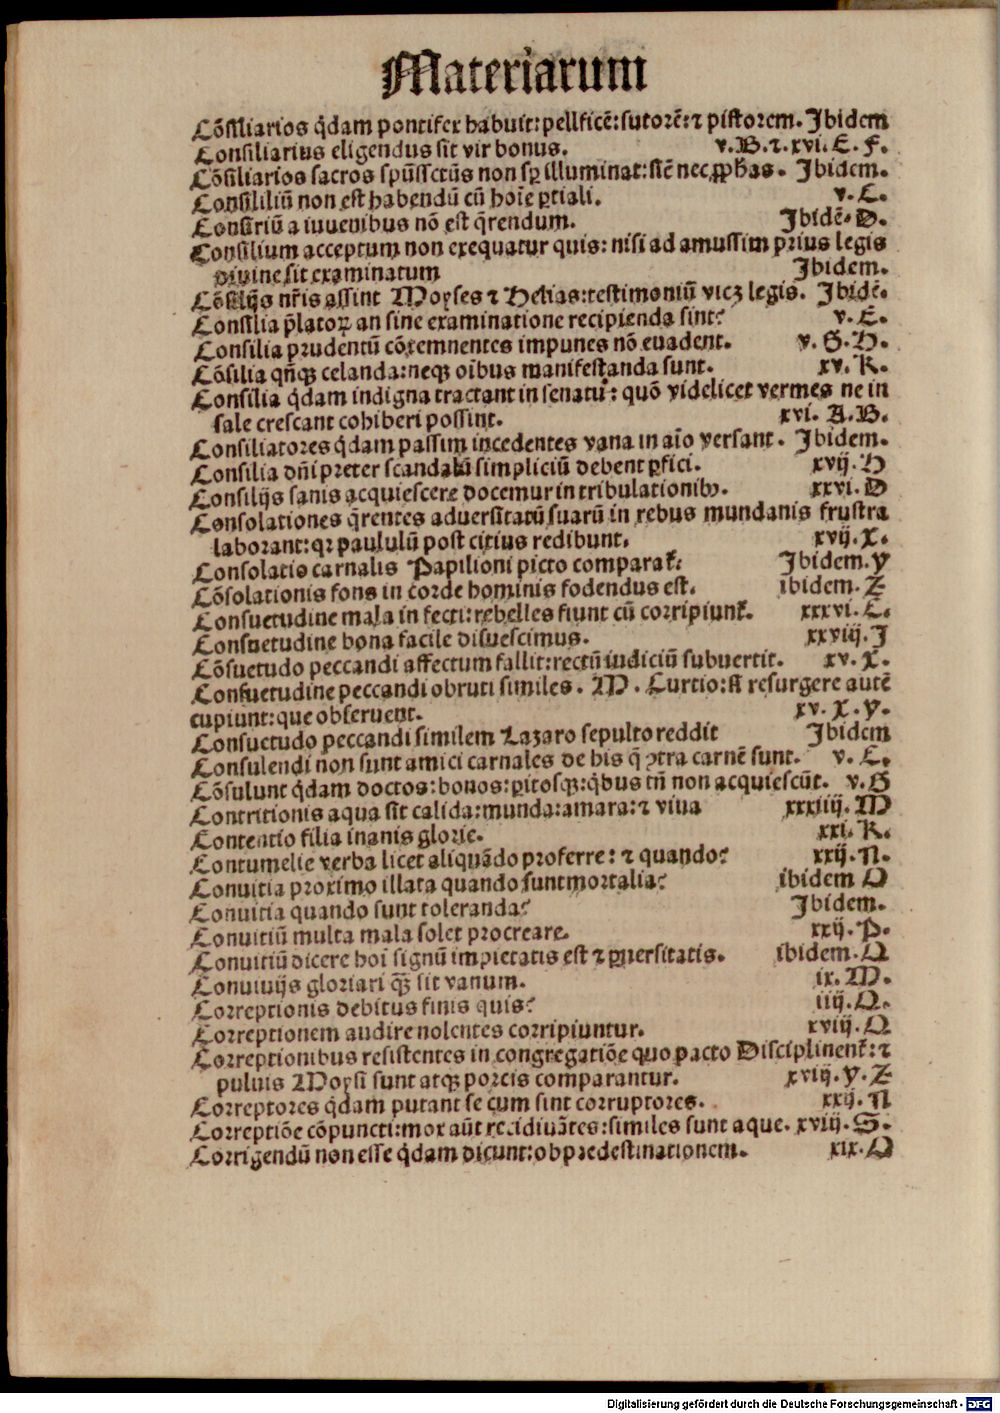 Materiarum
Cōsiliarios q̄dam pontifex habuit: pellficē: sutorē: ⁊ pistorem. Ibidem
Consiliarius eligendus sit vir bonus. v. B. ⁊. xvi. E. F.
Cōsiliarios sacros spūssctūs non sꝑ illuminat: sic̄ nec ꝓpħas. Ibidem.
Consililiū non est habendū cū hoīe ꝑtiali. v. C.
Consiriū a iuuenibus nō est q̄rendum. Ibidē. D.
Consilium acceptum non exequatur quis: nisi ad amussim prius legis
diuine sit examinatum Ibidem.
Cōsilijs nr̄is assint Moyses ⁊ Helias: testimoniū vicꝫ legis. Ibidē.
Consilia p̄latoꝝ an sine examinatione recipienda sint? v. E.
Consilia prudentū cōtemnentes impunes nō euadent. v. G. H.
Cōsilia qn̄qꝫ celanda: neqꝫ oibus manifestanda sunt. xv. K.
Consilia q̄dam indigna tractant in senatu: quō videlicet vermes ne in
sale crescant cohiberi possint. xvi. A. B.
Consiliatores q̄dam passim incedentes vana in aīo versant. Ibidem.
Consilia dn̄i preter scandalū simpliciū debent ꝑfici. xvij. H
Consilijs sanis acquiescere docemur in tribulationibꝰ. xxvi. D
Consolationes q̄rentes aduersitatū suarū in rebus mundanis frustra
laborant: qꝛ paululū post citius redibunt. xvij. X.
Consolatio carnalis Papilioni picto comparat᷑: Ibidem. Y
Cōsolationis fons in corde hominis fodendus est. ibidem. Z
Consuetudine mala in fecti: rebelles fiunt cū corripiunt᷑. xxxvi. C.
Consuetudine bona facile disuescimus. xxviij. I
Cōsuetudo peccandi affectum fallit: rectū iudiciū subuertit. xv. X.
Consuetudine peccandi obruti similes. M. Curtio: si resurgere autē
cupiunt: que obseruent. xv. X. Y.
Consuetudo peccandi similem Lazaro sepulto reddit Ibidem
Consulendi non sunt amici carnales de his q̄ ꝯtra carnē sunt. v. C.
Cōsulunt q̄dam doctos: bonos: ꝑitosqꝫ: q̄bus tn̄ non acquiescūt. v. G
Contritionis aqua sit calida: munda: amara: ⁊ viua xxxiiij. M
Contentio filia inanis glorie. xxi. K.
Contumelie verba licet aliquādo proferre: ⁊ quando? xxij. N.
Conuitia proximo illata quando sunt mortalia? ibidem O
Conuitia quando sunt toleranda? Ibidem.
Conuitiū multa mala solet procreare. xxij. P.
Conuitiū dicere hoī signū impietatis est ⁊ ꝑuersitatis. ibidem. Q
Conuiuijs gloriari qꝫ̄ sit vanum. ix. M.
Correptionis debitus finis quis? iiij. Q.
Correptionem audire nolentes corripiuntur. xviij. Q
Correptionibus resistentes in congregatiōe quo pacto Disciplinent᷑: ⁊
puluis Moysi sunt atqꝫ porcis comparantur. xviij. Y. Z
Correptores q̄dam putant se cum sint corruptores. xxij. N
Correptiōe cōpuncti: mox aūt recidiuātes: similes sunt aque. xviij. S.
Corrigendū non esse q̄dam dicunt: ob predestinationem. xix. O
Digitalisierung gefördert durch die Deutsche Forschungsgemeinschaft - DFG